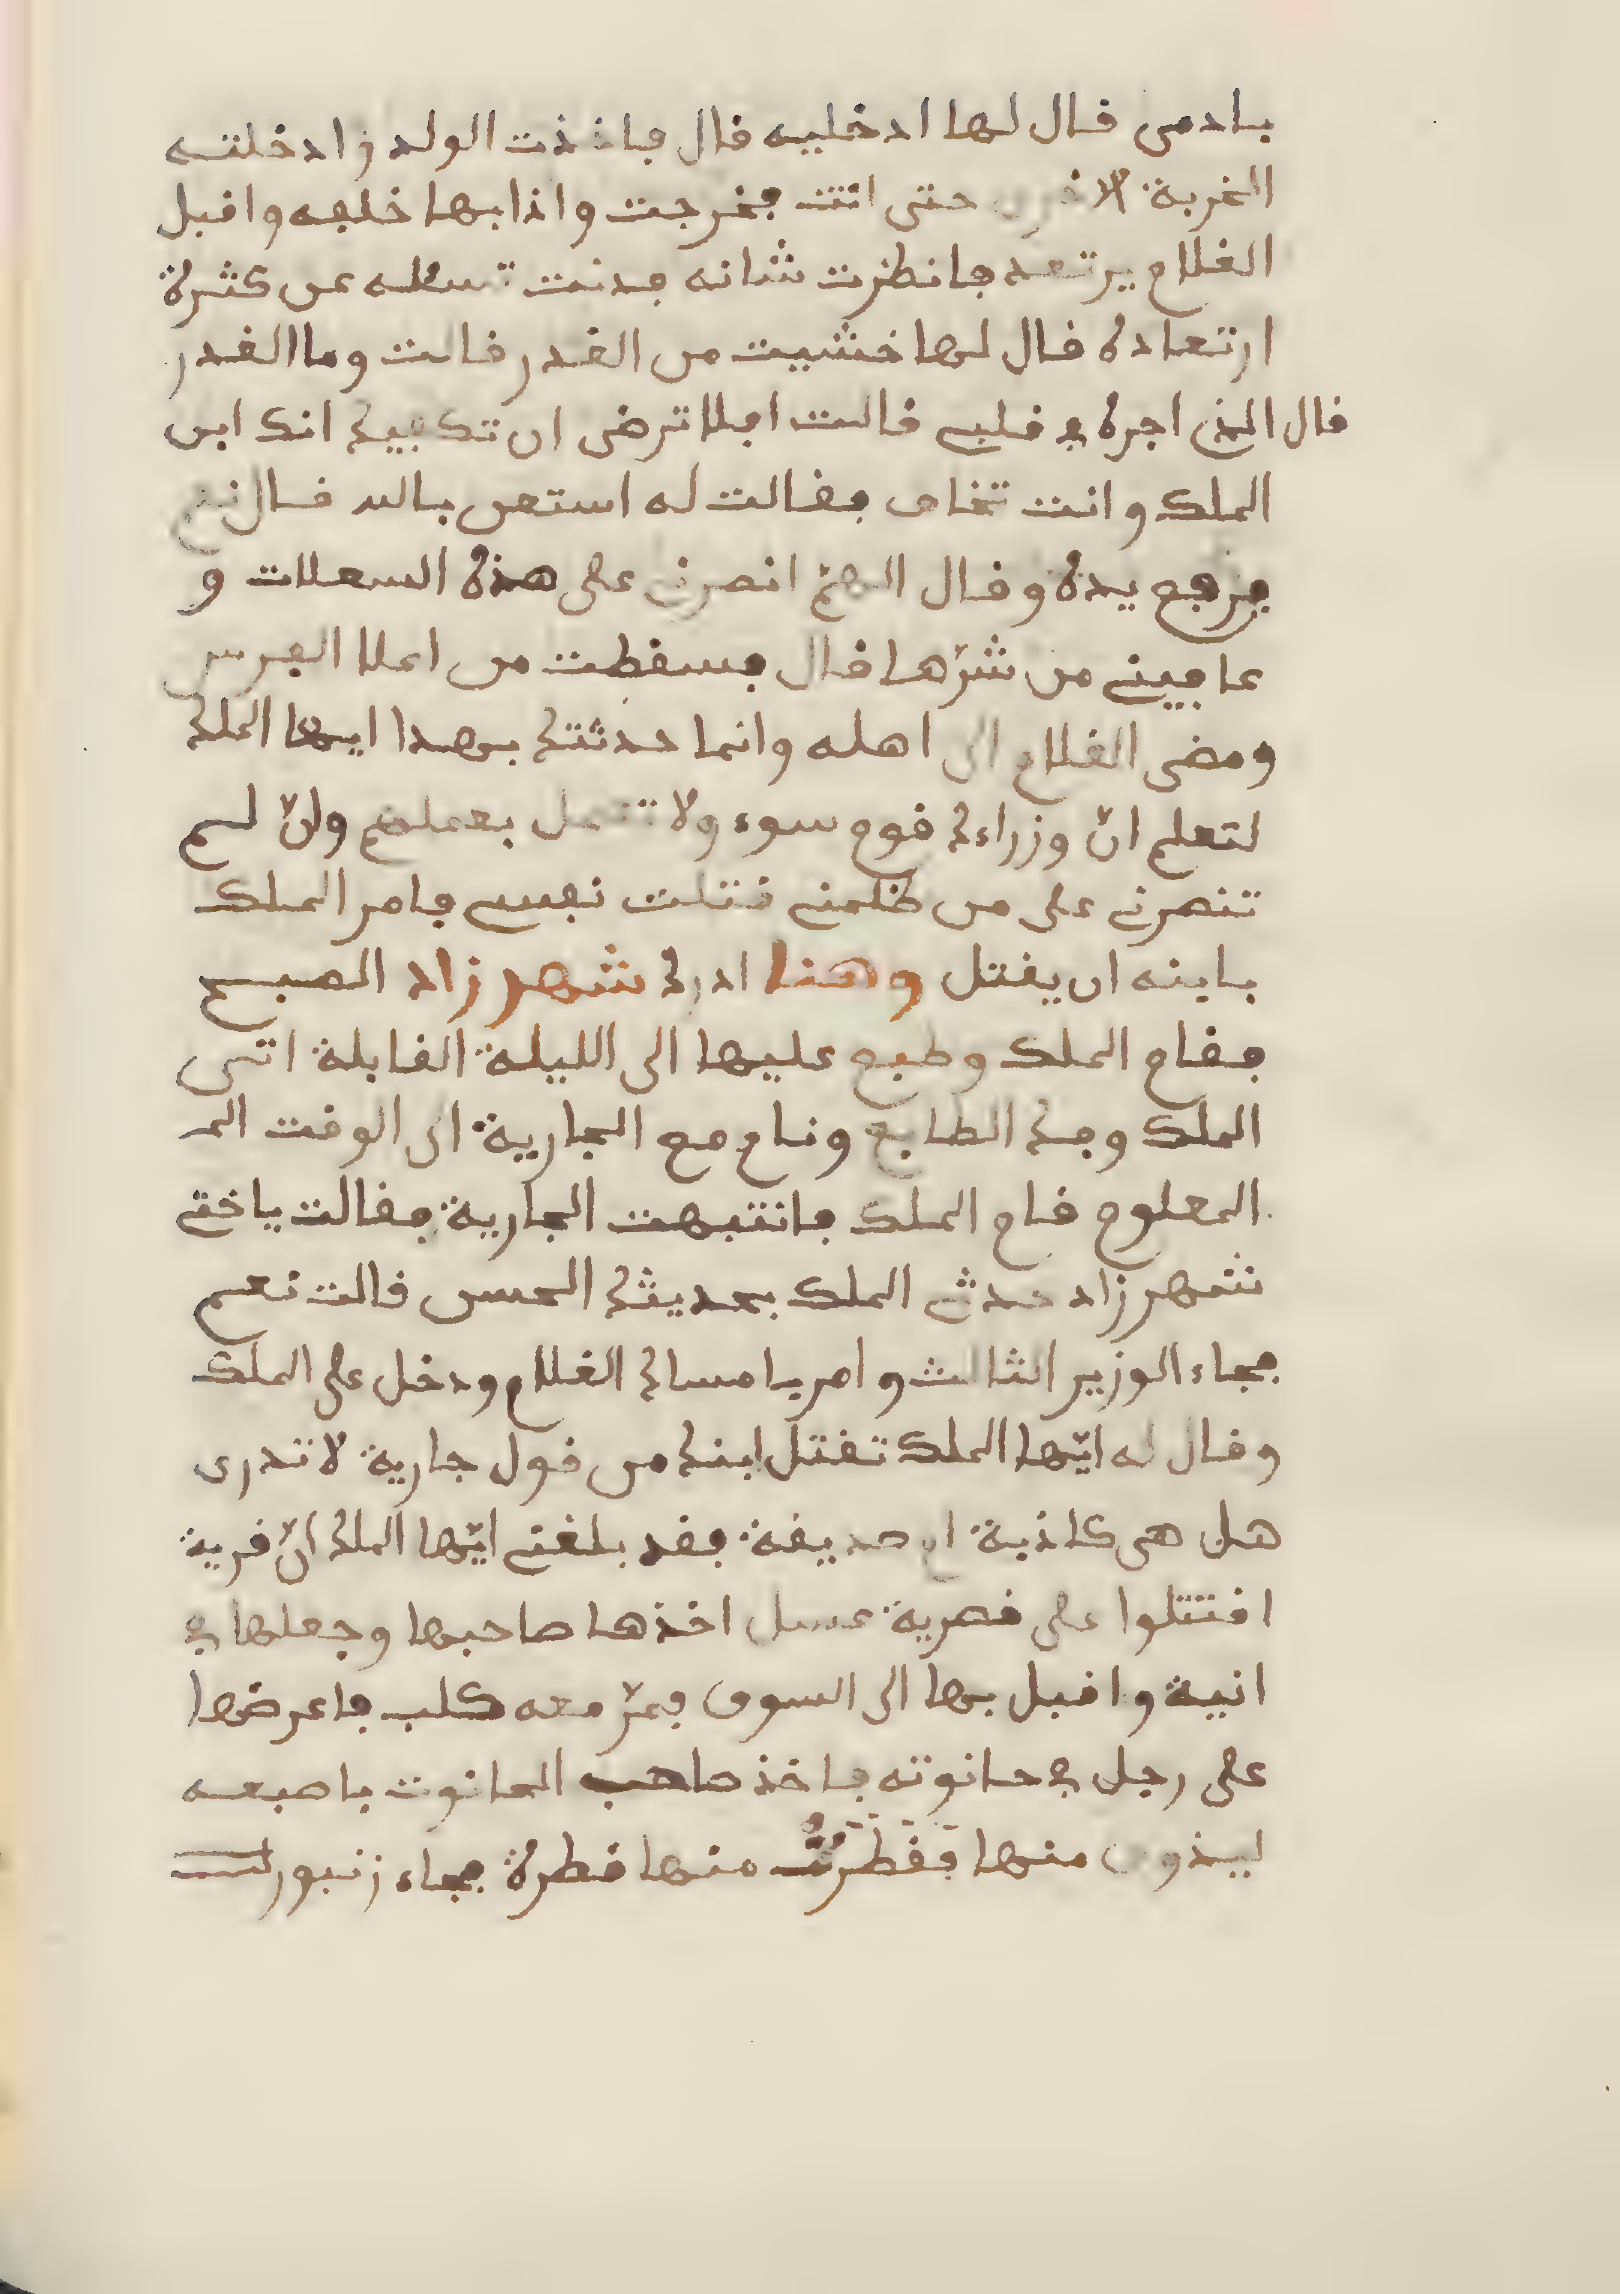 بادمى فال لها ادخليه فال فاخذت الولد وادخلته
الخربة الاخرى حتى اتت فخرجت واذا بها خلفه واقبل
الغلام يرتعد فانظرت شانه فدنت تسئله عن كثرة
ارتعاده قال لها خشيت من الغدر قالت وما الغدر
قال الذى اجره في قلبي قالت افلا ترضى ان تكفيك انك ابن
الملك وانت تخاف فقالت له استعن بالله قال نعم
فرفع يده وقال اللهم انصرنى على هذه السعلات و
عافينى من شرّها قال فسقطت من اعلا الفرس
ومضى الغلام الى اهله وانما حدثتك بهدا ايها الملك
لتعلم انّ وزراءك قوم سوء ولا تعمل بعملهم وانّ لم
تنصرنى على من ظلمنى قتلت نفسى فامر الملك
بابنه ان يقتل وهنا ادرك شهرزاد الصبح
فقام الملك وطبع عليها الى الليلة القابلة اتى
الملك وفك الطابع ونام مع الجارية الى الوقت الم
المعلوم قام الملك فانتبهت الجارية فقالت ياختى
شهرزاد حدثى الملك بحديثك الحسن قالت نعم
فجاء الوزير الثالث وامر بامساك الغلام ودخل على الملك
وقال له ايّها الملك تقتل ابنك من قول جارية لا تدرى
هل هى كاذبة ام صديقة فقد بلغنى ايّها الملك انّ قرية
اقتتلوا على قصرية عسل اخذها صاحبها وجعلها في
انية واقبل بها الى السوق فمرّ معه كلب فاعرضها
على رجل في حانوته فاخذ صاحب الحانوت باصبعه
ليذوق منها فقطرت منها قطرة فجاء زنبور